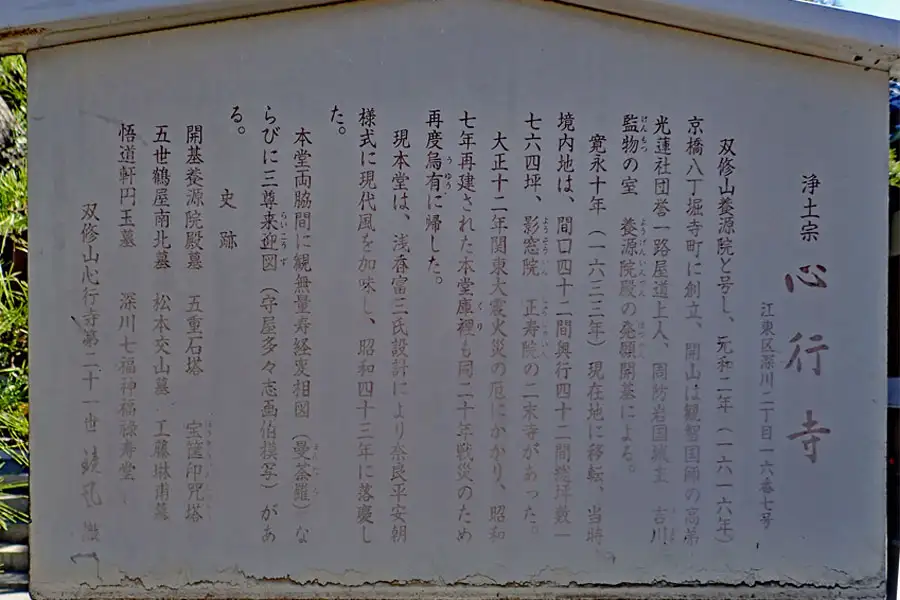 浄土宗 心行寺
江東区深川二丁目一六番七号
双修山養源院と号し、元和二年（一六一六年）
京橋八丁堀寺町に創立、開山は観智国師の高弟
光蓮社団誉一路屋道上人、周防岩国城主 吉川
監物の室 養源院殿の発願開基による。
寛永十年（一六三三年）現在地に移転、当時
境内地は、間口四十二間奥行四十二間総坪数一
七六四坪、影窓院 正寿院の二末寺があった。
大正十二年関東大震火災の厄にかかり、昭和
七年再建された本堂庫裡も同二十年戦災のため
再度烏有に帰した。
現本堂は、浅香富三氏設計により奈良平安朝
様式に現代風を加味し、昭和四十三年に落慶し
た。
本堂両脇間に観無量寿経変相図（曼荼羅）な
らびに三尊来迎図（守屋多々志画伯模写）があ
る。
史跡
開基養源院殿墓 五重石塔 宝篋印咒塔
五世鶴屋南北墓 松本交山墓 工藤啉甫墓
悟道軒円玉墓 深川七福神福禄寿堂
双修山心行寺第二十一世